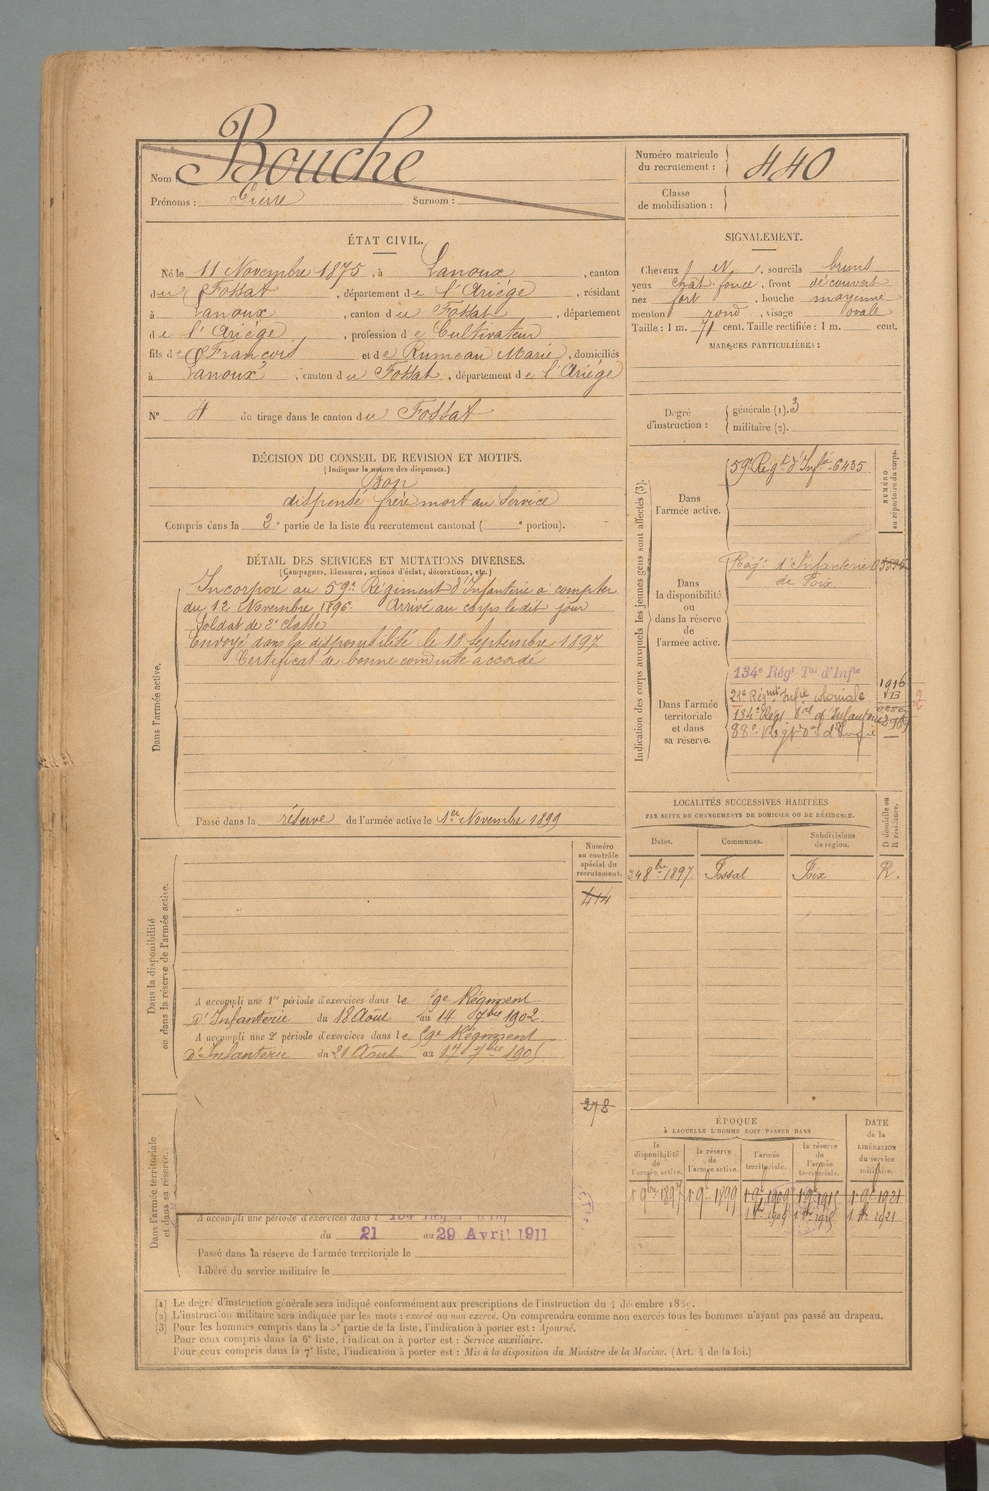 Nom : Bouche
Prénoms : Pierre Surnom :
Numéro matricule du recrutement : 440
Classe de mobilisation :
ÉTAT CIVIL.
Né le 11 Novembre 1875, à Lanoux, canton
du Fossat, département de l'Ariège, résidant
à Lanoux, canton du Fossat, département
de l'Ariège, profession de Cultivateur
fils de François et de Rumeau Marie, domiciliés
à Lanoux, canton du Fossat, département de l'Ariège
N° 4 de tirage dans le canton du Fossat
SIGNALEMENT.
Cheveux et sourcils bruns
yeux chat. foncé, front découvert
nez fort, bouche moyenne
menton rond, visage ovale
Taille : 1 m. 71 cent. Taille rectifiée : 1 m. cent.
MARQUES PARTICULIÈRES :
Degré d'instruction : générale (1). 3
militaire (2).
DÉCISION DU CONSEIL DE REVISION ET MOTIFS.
(Indiquer la nature des dispenses.)
Bon
dispensé frère mort au service
Compris dans la 2e partie de la liste du recrutement cantonal ( e portion).
DÉTAIL DES SERVICES ET MUTATIONS DIVERSES.
(Campagnes, blessures, actions d'éclat, décorations, etc.)
Dans l'armée active.
Incorporé au 59e Régiment d'Infanterie à compter
du 12 Novembre 1896. Arrivé au corps le dit jour
Soldat de 2e classe
Envoyé dans la disponibilité le 18 septembre 1897.
Certificat de bonne conduite accordé
Passé dans la réserve de l'armée active le 1er Novembre 1899
Indication des corps auxquels les jeunes gens sont affectés (3).
NUMÉRO au répertoire du corps.
Dans l'armée active.
59e Régt d'Infie 6435
Dans la disponibilité ou dans la réserve de l'armée active.
Régt d'Infanterie
de Foix
Dans l'armée territoriale et dans sa réserve.
134e Régt Tal d'Infie
21e Régiment Infie coloniale
134e Régt tal d'Infanterie
88e Régt d'Infie
LOCALITÉS SUCCESSIVES HABITÉES
PAR SUITE DE CHANGEMENTS DE DOMICILE OU DE RÉSIDENCE.
Dates. Communes. Subdivisions de région. D domicile ou R résidence.
24 8bre 1897. Fossat Foix R.
Dans la disponibilité ou dans la réserve de l'armée active.
Numéro au contrôle spécial du recrutement.
414
A accompli une 1re période d'exercices dans le 59e Régiment
d'Infanterie du 18 Août au 14 7bre 1902.
A accompli une 2e période d'exercices dans le 59e Régiment
d'Infanterie du 21 Août au 17 7bre 1905
278
Dans l'armée territoriale et dans sa réserve.
A accompli une période d'exercices dans l
du 21 au 29 Avril 1911
Passé dans la réserve de l'armée territoriale le
Libéré du service militaire le
ÉPOQUE
À LAQUELLE L'HOMME DOIT PASSER DANS
la disponibilité de l'armée active. la réserve de l'armée active. l'armée territoriale. la réserve de l'armée territoriale.
DATE de la LIBÉRATION du service militaire.
1 9bre 1897 1 9bre 1899 1 9bre 1909 1 9bre 1915 1 9bre 1921
(1) Le degré d'instruction générale sera indiqué conformément aux prescriptions de l'instruction du 4 décembre
(2) L'instruction militaire sera indiquée par les mots : exercé ou non exercé. On comprendra comme non exercés tous les hommes n'ayant pas passé au drapeau.
(3) Pour les hommes compris dans la 5e partie de la liste, l'indication à porter est : Ajourné.
Pour ceux compris dans la 6e liste, l'indication à porter est : Service auxiliaire.
Pour ceux compris dans la 7e liste, l'indication à porter est : Mis à la disposition du Ministre de la Marine. (Art. 4 de la loi.)